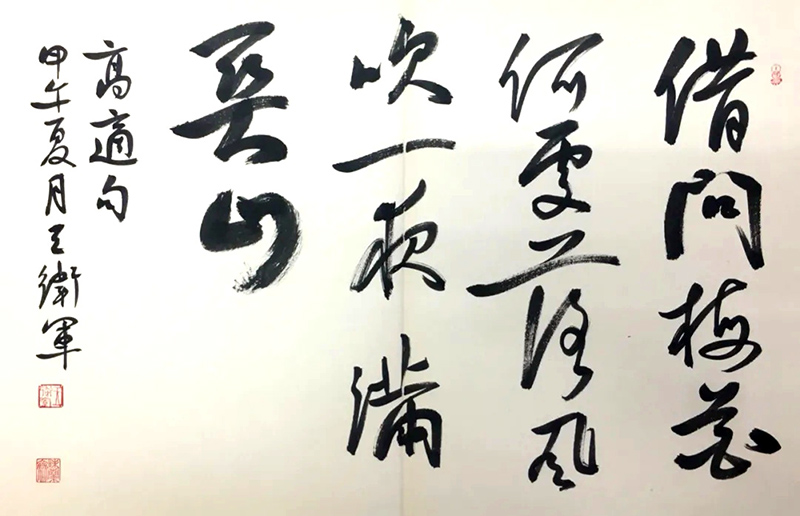 借問梅花
何處落風
吹一夜滿
關山
高適句
甲午夏月王衛軍